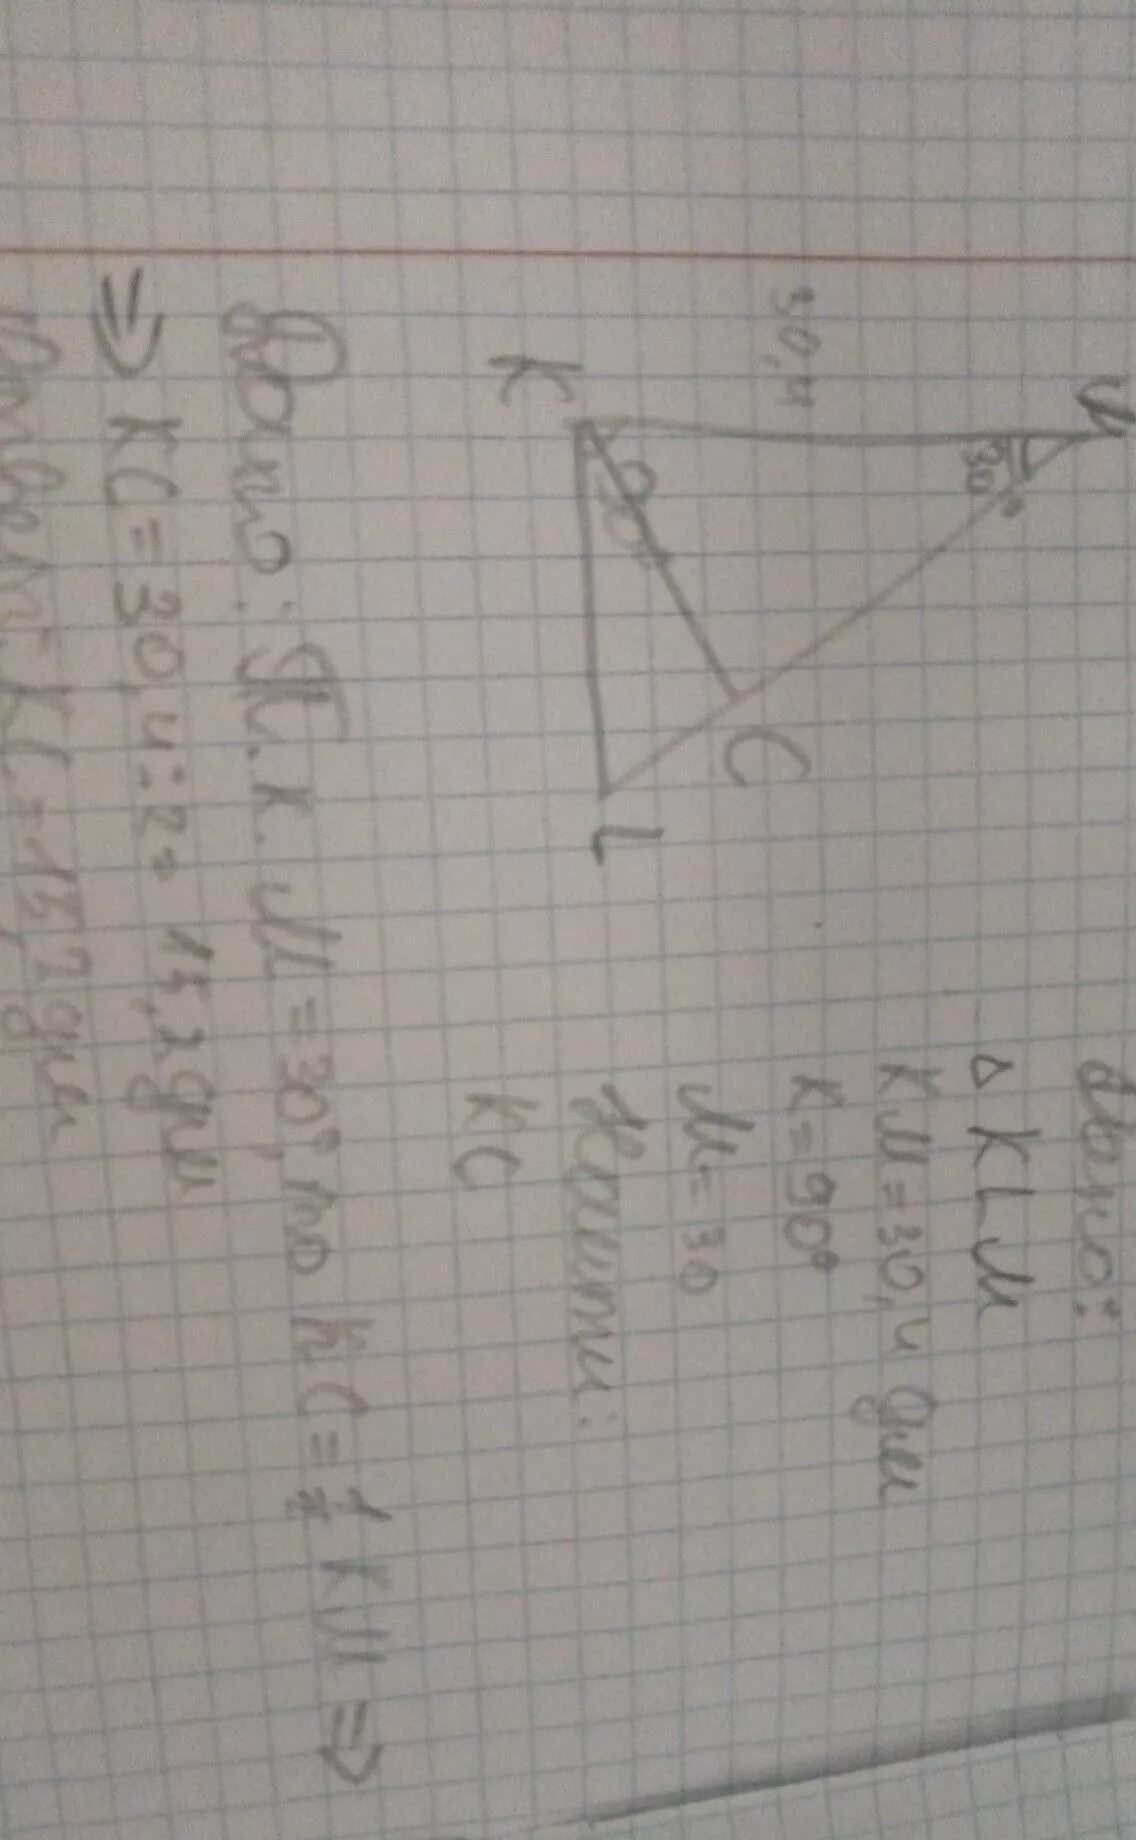 М
30°
30,4
90°
К
С
L
Дано:
△ KLM
KM = 30,4 дм
K = 90°
M = 30
Найти:
KC
Док-во: Т.к. M = 30°, то KC = 1/2 KM ⇒
⇒ KC = 30,4 : 2 = 15,2 дм
Ответ: KC = 15,2 дм